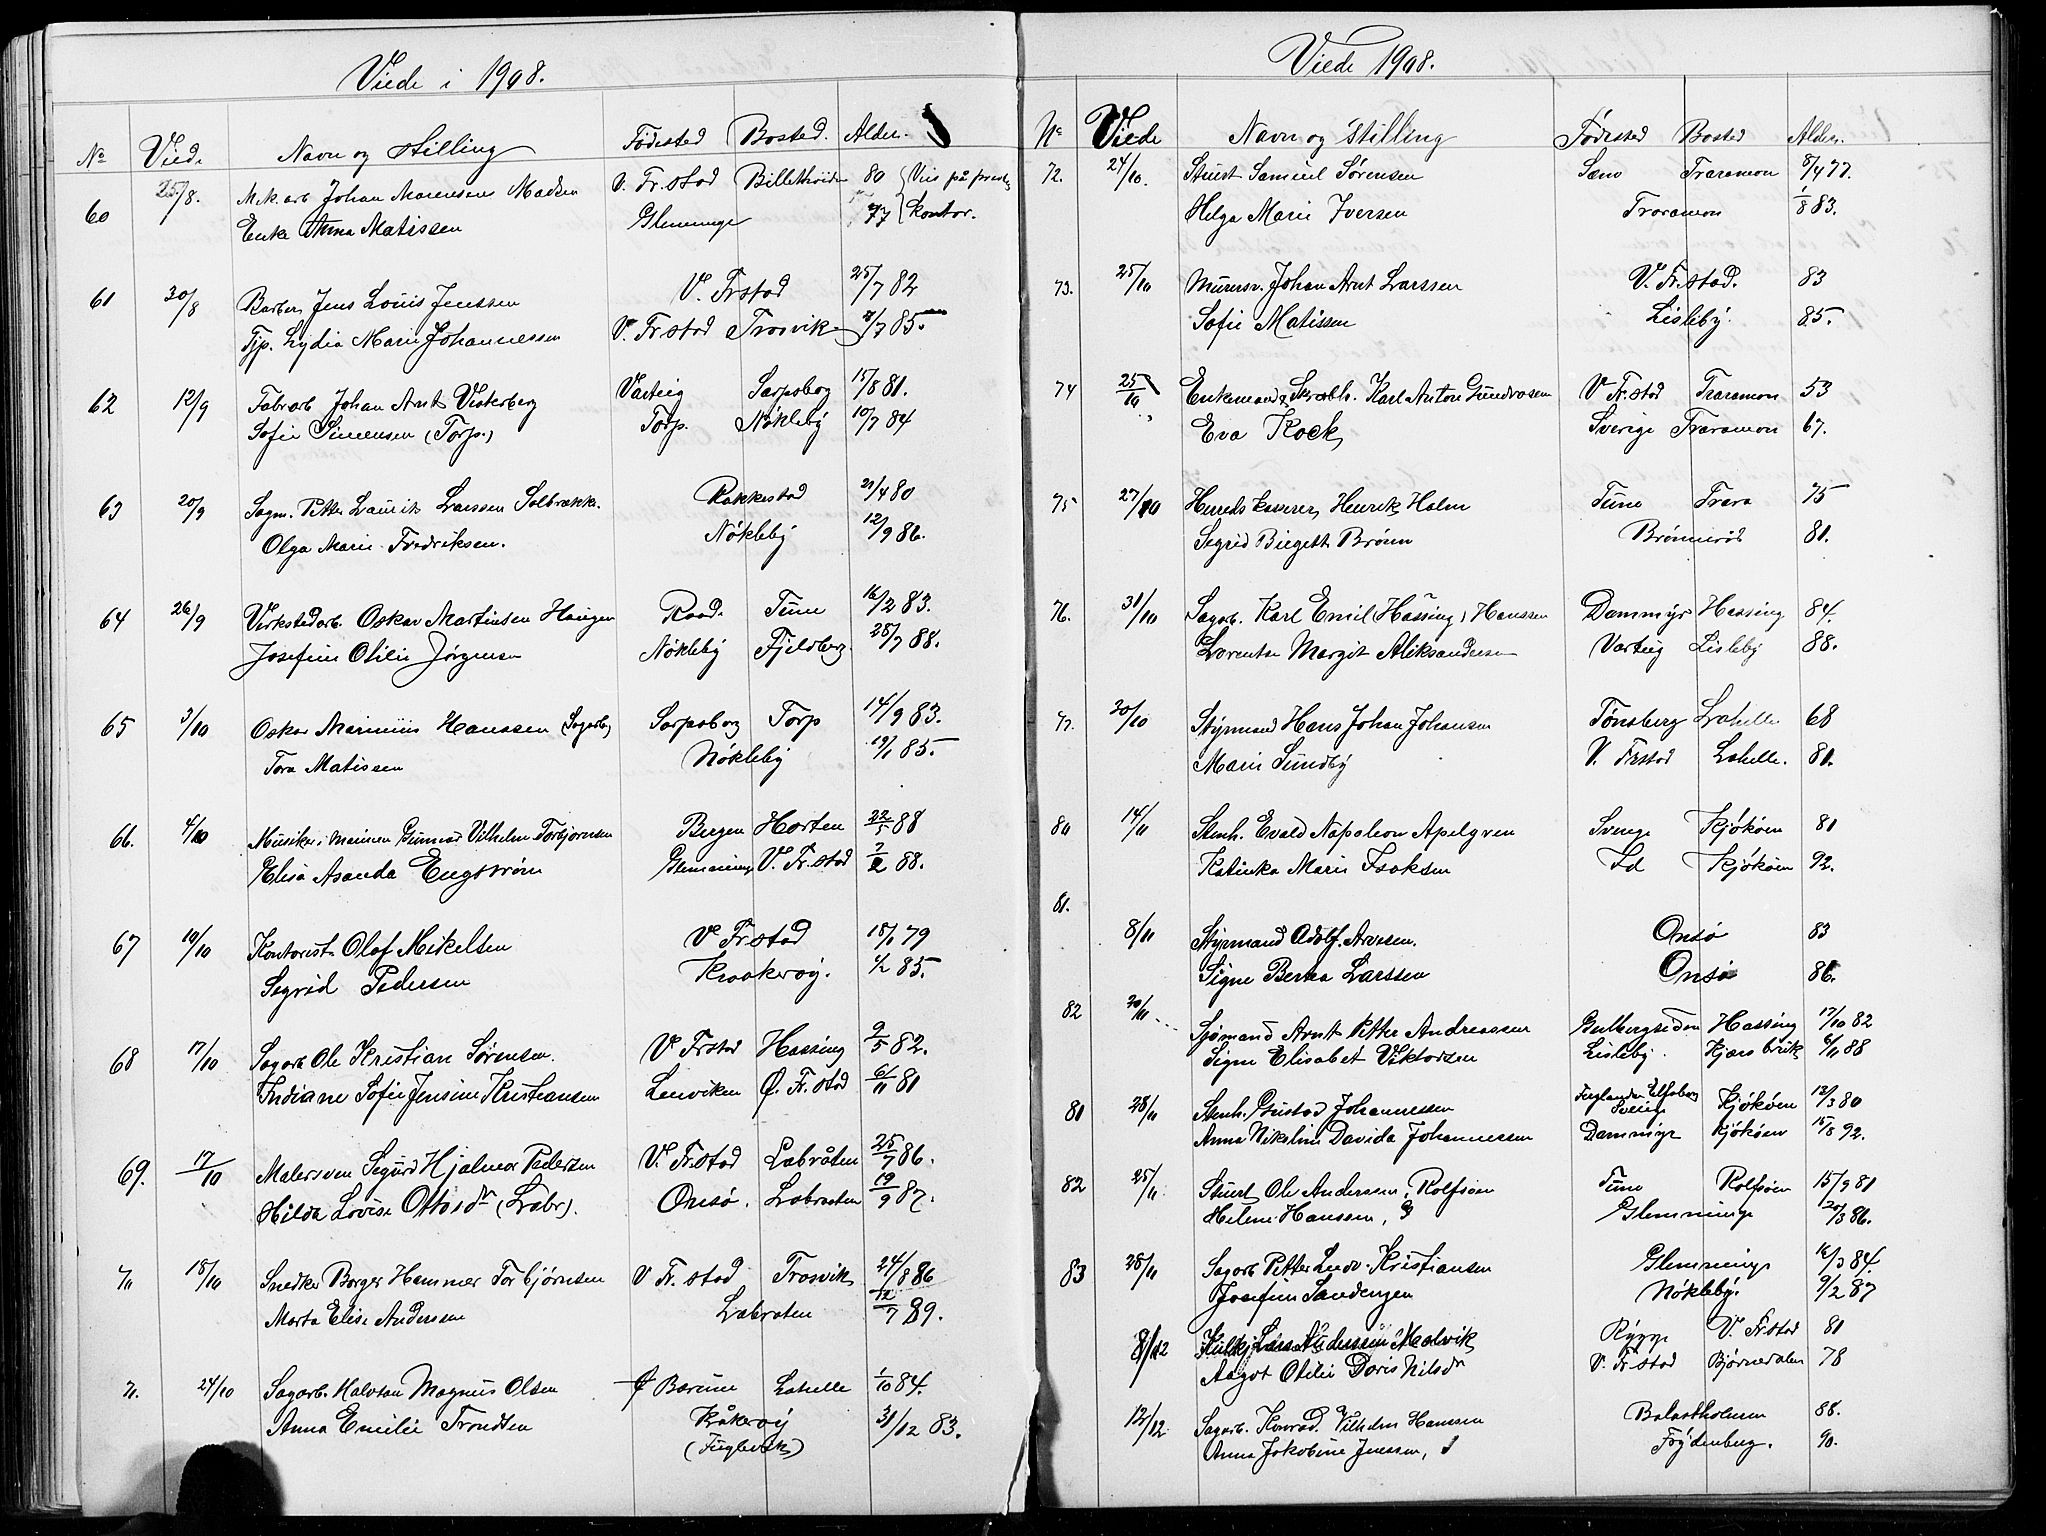 Viede i 1908.
No Vied. Navn og Stilling Fødested Bosted. Alder.
60 25/8. Mek. arb Johan Marensen Madsen V. Fr.stad 80 Vies på prest
Enke Anna Matissen Glemminge 77 kontor.
61 30/8 Barber Jens Louis Jenssen V. Frstad 25/7 82
Tjp. Lydia Marie Johannessen V. Fr stad Trosvik /7 85.
62 12/9 Fabr arb Johan Arnt Vesterberg Varteig Sarpsborg 15/8 81.
Sofie Simensen (Torp.) Torp. Nøkleby 10/7 84
63 20/9 Sagm. Petter Laurits Larssen Solbrække. Rakkestad 21/4 80
Olga Marie Fredriksen. Nøkleby 12/9 86.
64 26/9 Verkstedarb. Oskar Martinsen Haugen Raad. Tune 16/2 83.
Josefine Otilie Jørgensen Nøkleby Fjeldberg. 28/7 88.
65 3/10 Oskar Marinius Hanssen (Sagarb) Sarpsborg Torp 14/9 83.
Tora Matissen Nøkleby 19/1 85.
66. 4/10 Musiker i marinen Gunnar Vilhelm Torbjørnsen Bergen Horten 22/5 88
Elisa Asanda Engstrøm Glemminge V. Fr. stad 7/2 88.
67 10/10 Kontorist Olaf Mikelsen V. Fr. stad 18/1 79
Segrid Pedersen Kraakerøy. 4/2 85.
68 17/10 Sagarb Ole Kristian Sørensen. V. Frstad Hassing 9/5 82.
Indiane Sofie Jensine Kristiansen Leuviken Ø. Fr. stad 6/11 81
69. 17/10 Malersven Segurd Hjalmar Pedersen V. Fr.stad Labråten 25/7 86.
Hilda Lovise Ottosdr (Labr). Onsø. Labraaten 19/9 87.
70 18/10 Snedker Borger Hammer Torbjørnsen V Fr. stad Trosvik 24/8 86
Marta Elise Andersen Labraten 12/7 89.
71. 24/10 Sagarb. Halvtan Magnus Olsen Bærum Lahelle 1/10 84.
Anna Emilie Trondsen Kråkerøy 31/12 83.
(Fuglevik)
Viede 1908.
No Viede Navn og Stilling Fødested Bosted Alder.
72. 24/10. Stuert Samuel Sørensen Sæno Traramon 8/4 77.
Helga Marie Iversen Traramon 1/8 83.
73. 25/10 Murersv. Johan Arnt Larssen V. Fr.stad. 83
Sofie Matissen Lisleby. 85.
74 25/10 Enkemand Karl Anton Gundrosen V Fr. stad Traramon 53
Eva Kock Sverige Traramon 67.
75 27/10 Herredskaserer Henrik Holm Tune Trara 75
Segrid Birgett Brønn Brønnerød 81.
76. 31/10 Sagarb. Karl Emil (Hassing) Hanssen Dammyr Hassing 84.
Lorentse Margit Aleksandersen Varteig Lisleby 88.
77. 30/10 Styrmand Hans Johan Johansen Tønsberg Lahelle 68
Marie Sundby V. Frstad Lahelle. 80.
80 14/11 Stenh. Evald Napoleon Apelgren Sverige Kjøkøen 80
Katinka Marie Isaksen Id Kjøkøen 92.
81.
8/11 Styrmand Adolf. Arvesen. Onsø 83
Signe Berta Larssen Onsø 86.
82 20/11 Sjømand Arnt Petter Andreassen Gulbergsiden Hassing 17/10 82
Signe Elisabet Viktorsen Lisleby. Kjærsbrik 6/11 88
81 28/11 Stenh. Gustav Johannessen Sverige Kjøkøen 12/3 80
Anna Nikoline Davida Johannessen Dammyr Kjøkøen 15/8 92.
82 25/11 Stuert Ole Andersen, Rolfsøen Tune Rolfsøen 15/9 81
Helene Hanssen, Glemminge 20/3 86.
83 28/11 Sagarb Petter Ludv. Kristiansen Glemminge 16/3 84.
Josefine Sandengen Nøkleby. 9/2 87
8/12 Lars Andersen Malvik Rygge V. Fr.stad 81
Aagot Otilie Doris Nilsdr V. Fr.stad Bjørnedalen 78
12/12 Sagarb. Konrad Vilhelm Hanssen Balastholmen 88.
Anna Jakobine Jenssen, Frydenberg. 90.